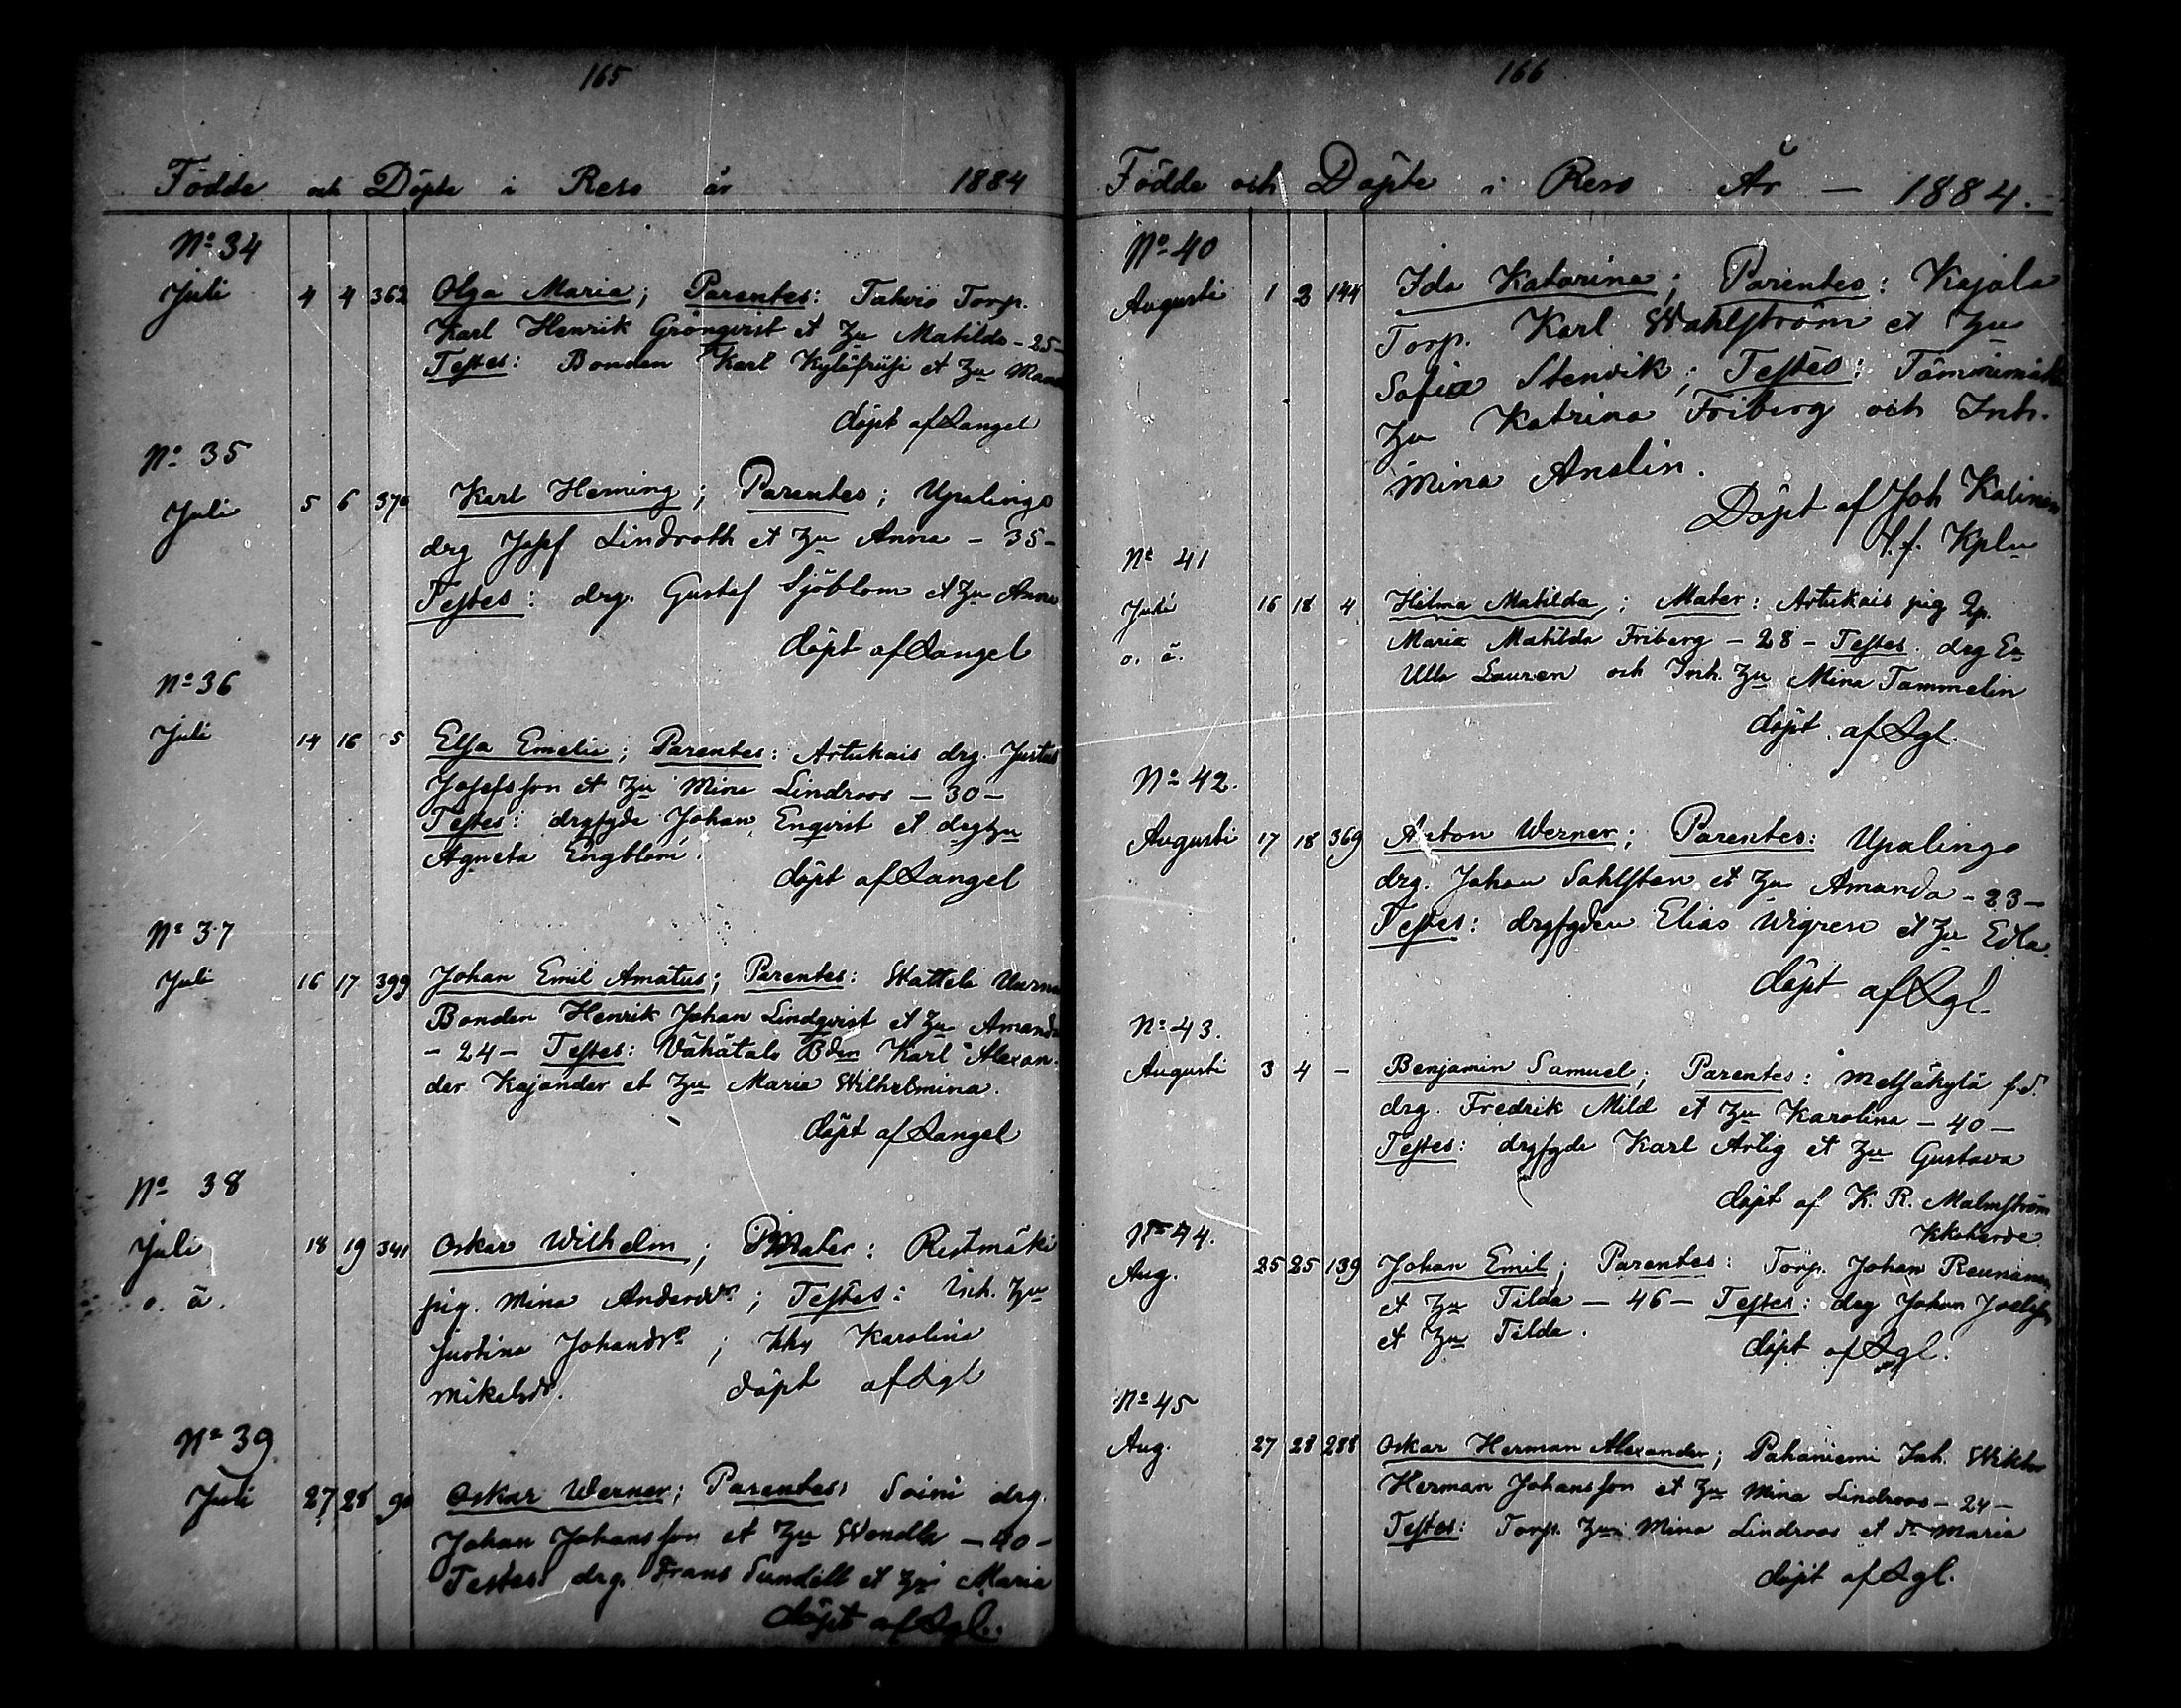 165
Födde och Döpte i Reso år 1884
No 34
Juli 4 4 362 Olga Maria; Parentes: Tahvio Torp.
Karl Henrik Grönqvist et Hu Matilda - 25 -
Testes: Bonden Karl et Hu
döpt af Langel
No 35
Juli 5 6 370 Karl Heming; Parentes; Upalingo
drg Josef Lindroth et Hu Anna - 35 -
Testes: drg. Gustaf Sjöblom et Hu Anna
döpt af Langel
No 36
Juli 14 16 5 Elsa Emelie; Parentes: Artukais drg. Justus
Josefsson et Hu Mina Lindroos - 30 -
Testes: drgsyde Johan Enqvist et drghu
Agneta Engblom.
döpt af Langel
No 37
Juli 16 17 399 Johan Emil Amatus; Parentes: Wattela
Bonden Henrik Johan Lindqvist et Hu Amanda
- 24 - Testes: Vähätalo Bden Karl Alexan-
der Kajander et Hu Maria Wilhelmina.
döpt af Langel
No 38
Juli 18 19 341 Oskar Wilhelm; Mater: Ristmäki
o. ä. pig. Mina Andersdr; Testes: Inh. Hu
Justina Johansdr; Karolina
Mikelsdr. döpt af Lgl
No 39
Juli 27 28 90 Oskar Werner; Parentes: Soini drg.
Johan Johansson et Hu Wendla - 40 -
Testes: drg. Frans Sundell et Hu Maria
döpt af Lgl.
166
Födde och Döpte i Reso År - 1884.
No 40
Augusti 1 2 144 Ida Katarina; Parentes: Kajala
Torp. Karl Wahlström et Hu
Sofia Stenvik; Testes:
Hu Katrina Friberg och Inh.
Mina Anslin.
Döpt af Joh Kalinen
t.f. Kpln
No 41
Juli 16 18 4 Hilma Matilda; Mater: Artukais pig
o. ä. Maria Matilda Friberg - 28 - Testes. drg En
Ulla Lauren och Inh. Hu Mina Tammelin
döpt af Lgl.
No 42.
Augusti 17 18 369 Anton Werner; Parentes: Upalingo
drg. Johan Sahlsten et Hu Amanda - 23 -
Testes: drgsyden Elias Wigren et Hu Edla.
döpt af Lgl.
No 43.
Augusti 3 4 - Benjamin Samuel; Parentes: Metsäkylä f.d.
drg. Fredrik Mild et Hu Karolina - 40 -
Testes: drgsyde Karl Artig et Hu Gustava
döpt af K. R. Malmström
Kkoherde.
No 44.
Aug. 25 25 139 Johan Emil; Parentes: Torp. Johan Reunanen
et Hu Tilda - 46 - Testes: drg Johan
et Hu Tilda.
döpt af Lgl.
No 45
Aug. 27 28 288 Oskar Herman Alexander; Pahaniemi Inh. Wiktor
Herman Johansson et Hu Mina Lindroos - 24 -
Testes: Torp. Hu: Mina Lindroos et dr Maria
döpt af Lgl.